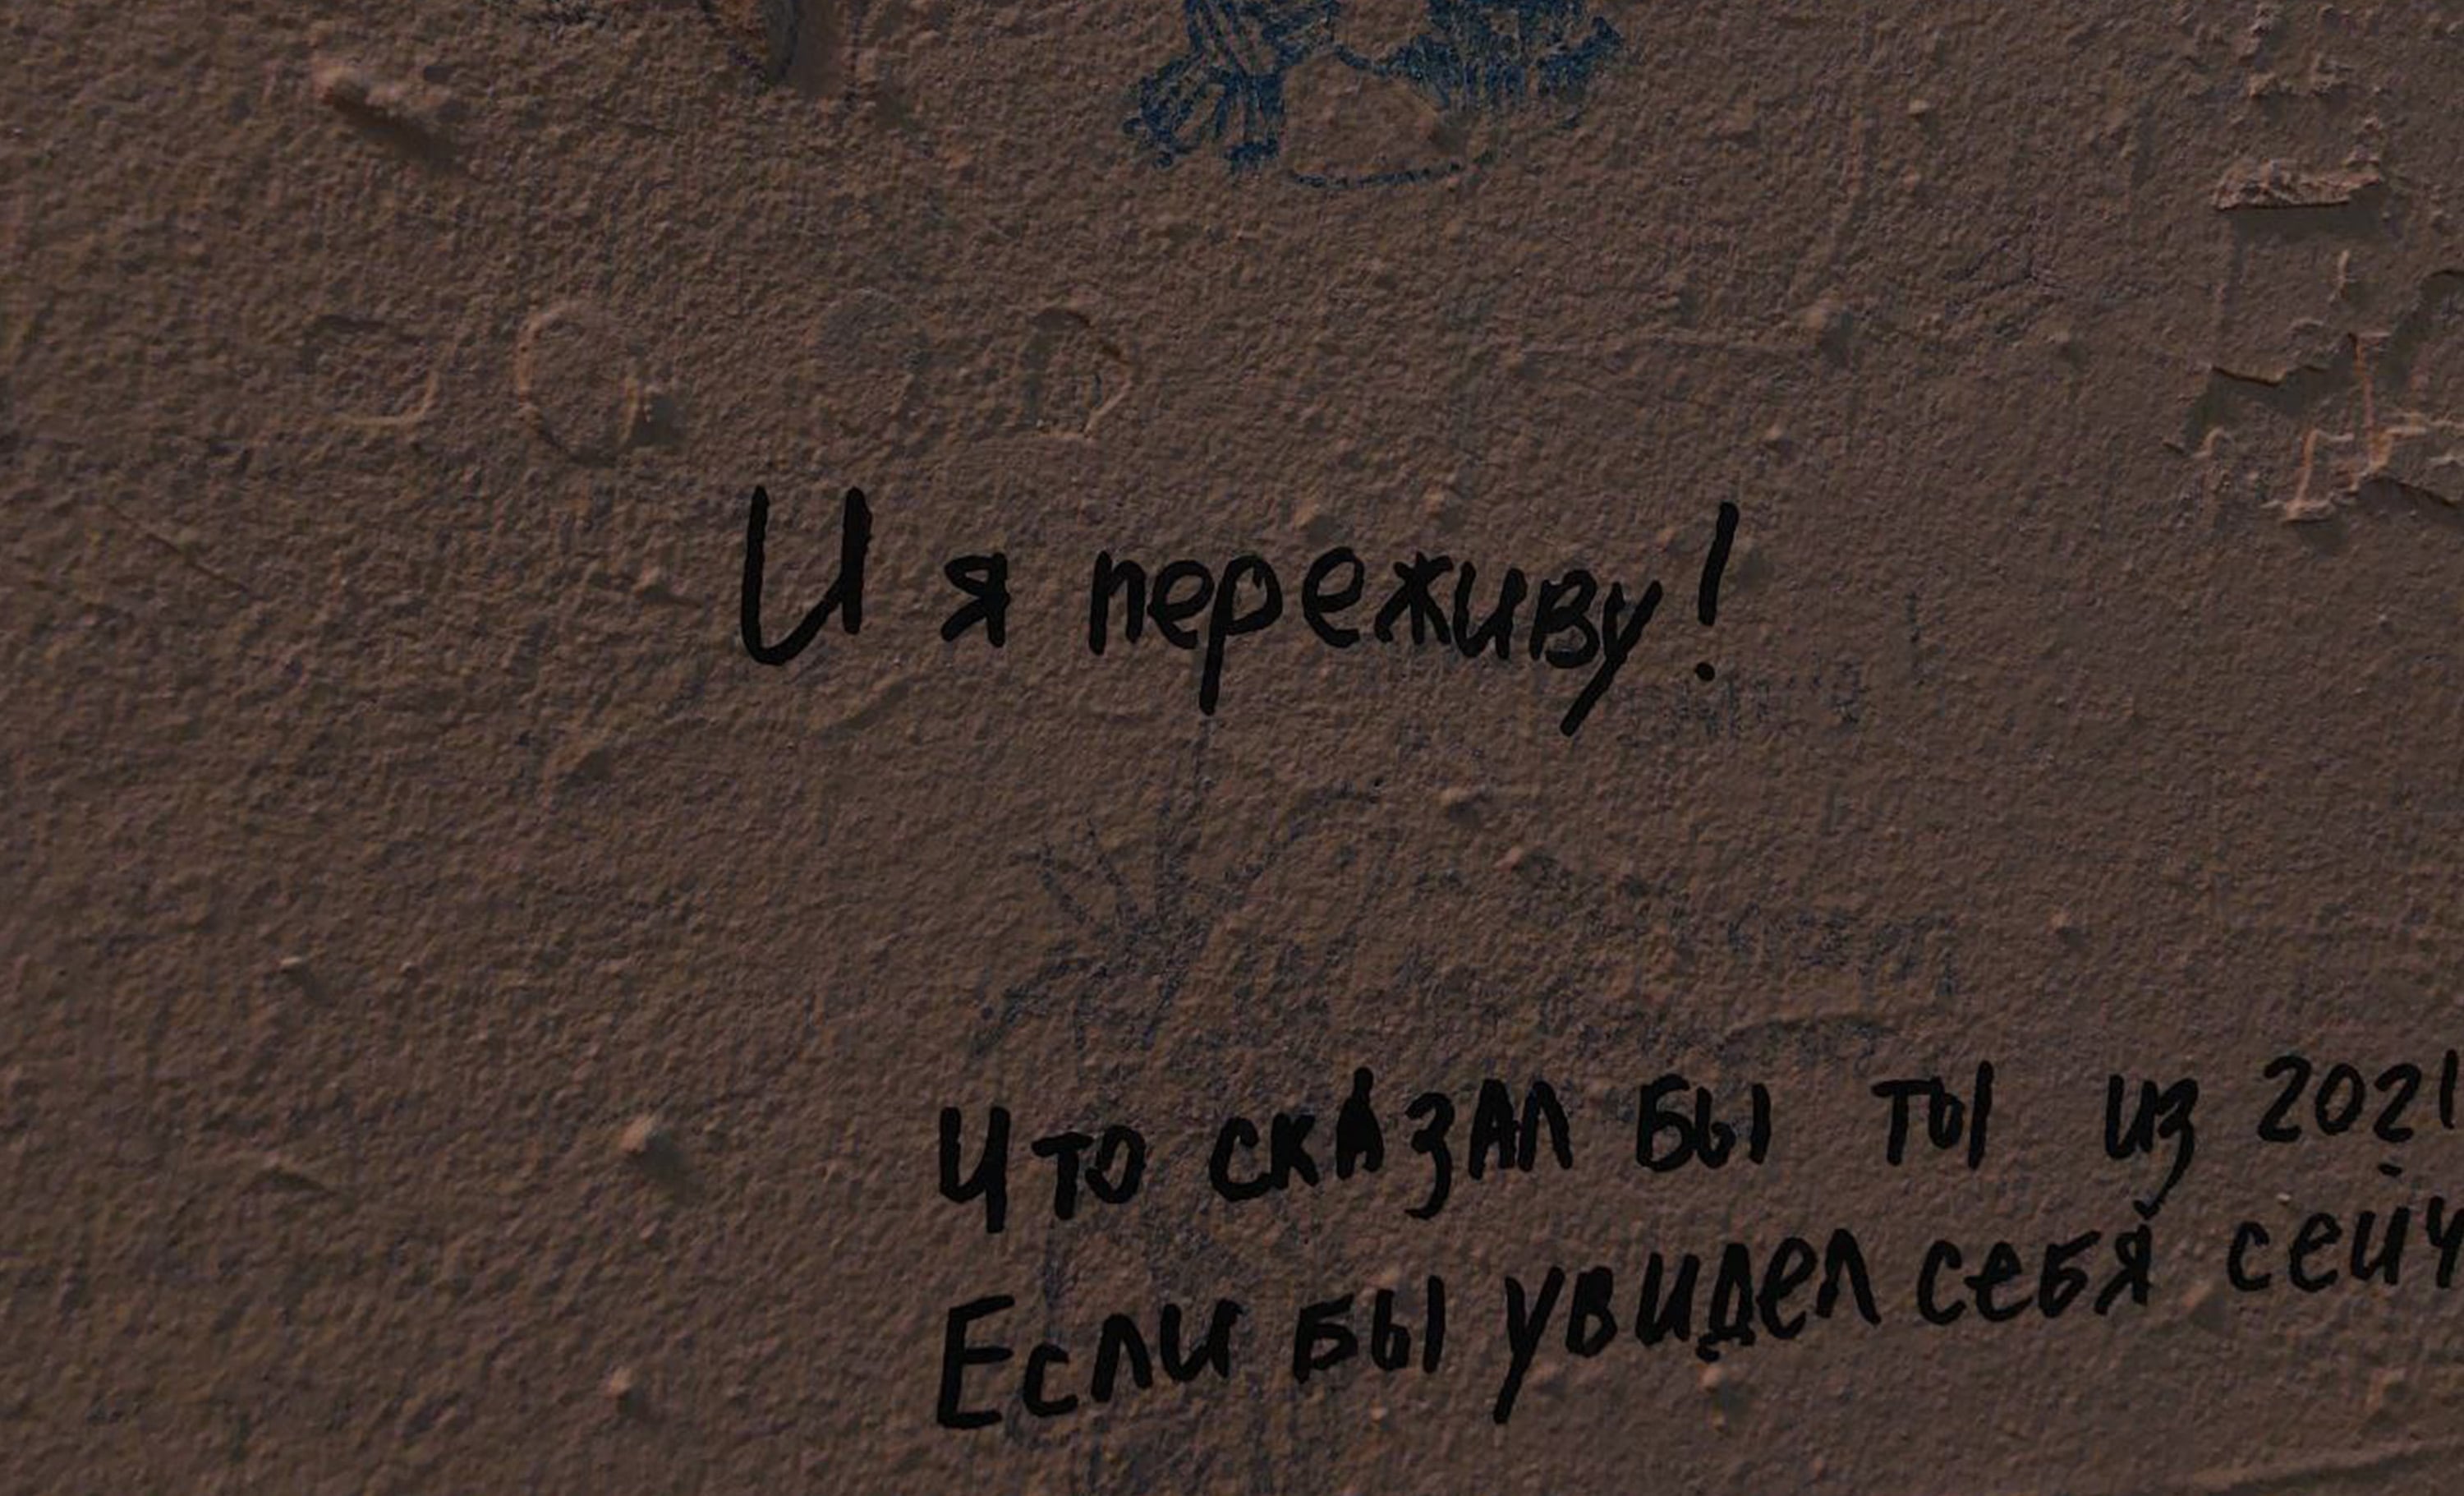 И я переживу!
Что сказал бы ты из 2021
Если бы увидел себя сейч